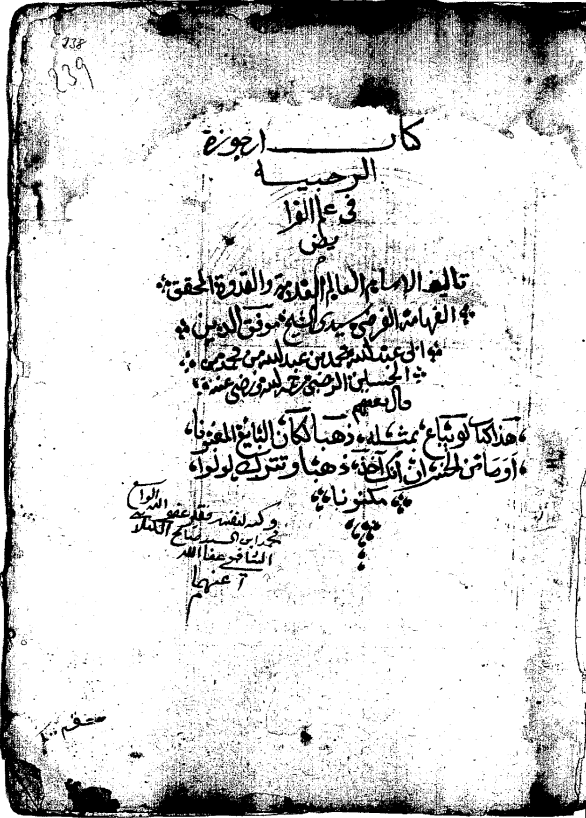 238
239
كتاب ارجوزة
الرحبيه
في علم الفرا
يض
تاليف الامام العالم العلامة والقدوة المحقق
الفهامة الفرضي سيدي الشيخ موفق الدين
ابي عبد الله محمد بن عبد الله بن محمد بن
الحسين الرحبي رحمه الله ورضي عنه
قال بعضهم
هذا كتاب لو يباع بمثله ذهبا لكان البائع المغبونا
او ما من الخسران انك اخذ ذهبا وتترك لولوا
مكنونا
وكتبه لنفسه فقير عفو الله
محمد ابن
الشافعي عفا الله
عنهما